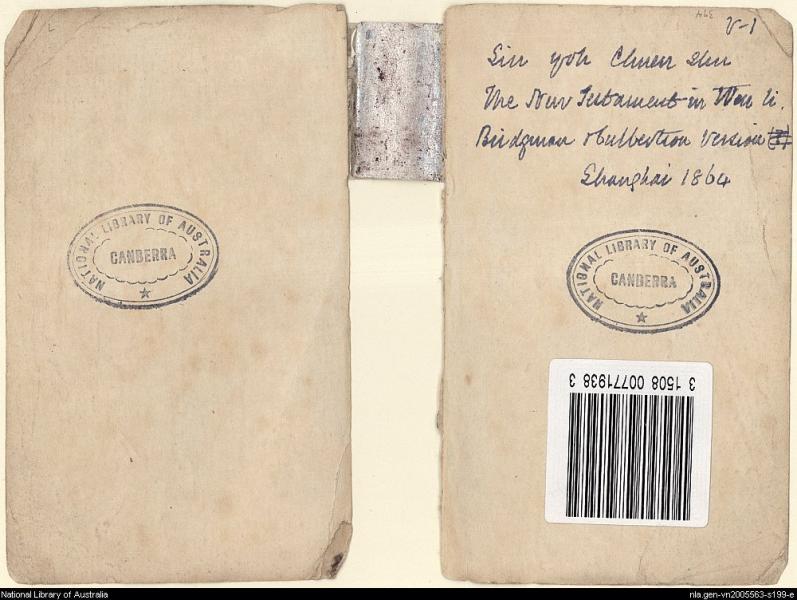 NATIONAL LIBRARY OF AUSTRALIA
CANBERRA
V-1
Sin yoh Chuen Shu
The New Testament in Wen li.
Bridgman & Culbertson Version
Shanghai 1864
NATIONAL LIBRARY OF AUSTRALIA
CANBERRA
3 1508 00771938 3
National Library of Australia
nla.gen-vn2005563-s199-e